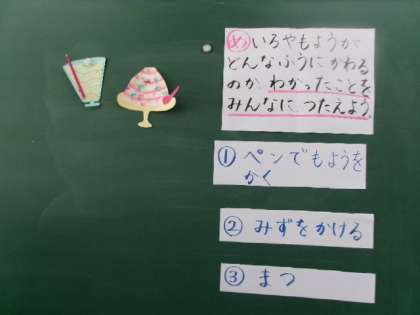 め いろやもようが
どんなふうにかわる
のか、わかったことを
みんなに つたえよう。
① ペンでもようを
かく
② みずをかける
③ まつ